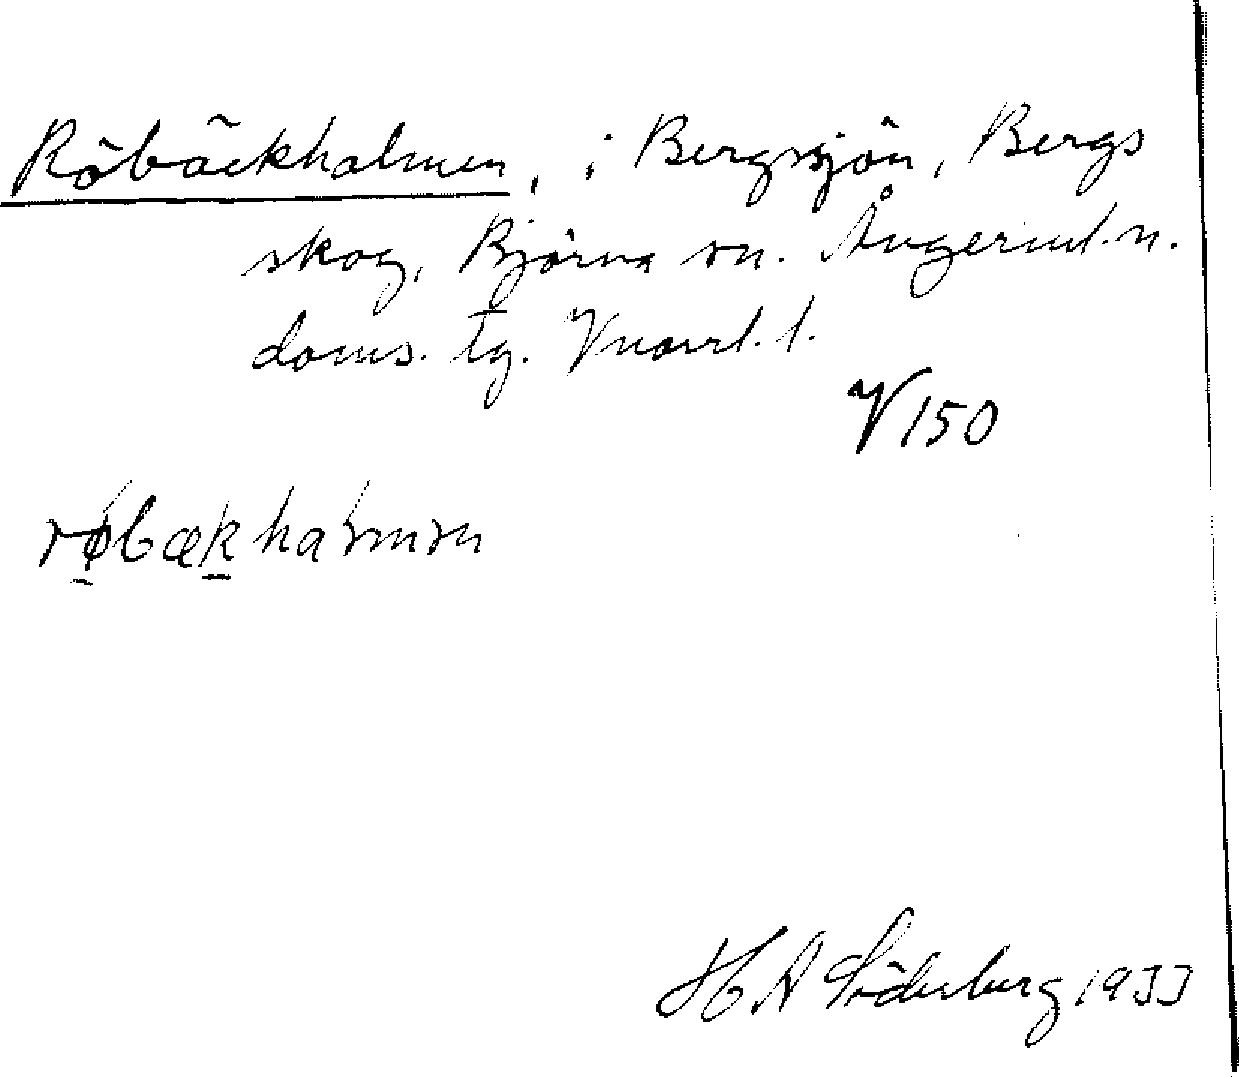 Röbäckholmen, i Bergsjön, Bergs
skog, Björna sn. Ångerml. n.
doms. tg. Vnorrl. l.
V 150
røbækhaɽmən
H A Söderberg 1933